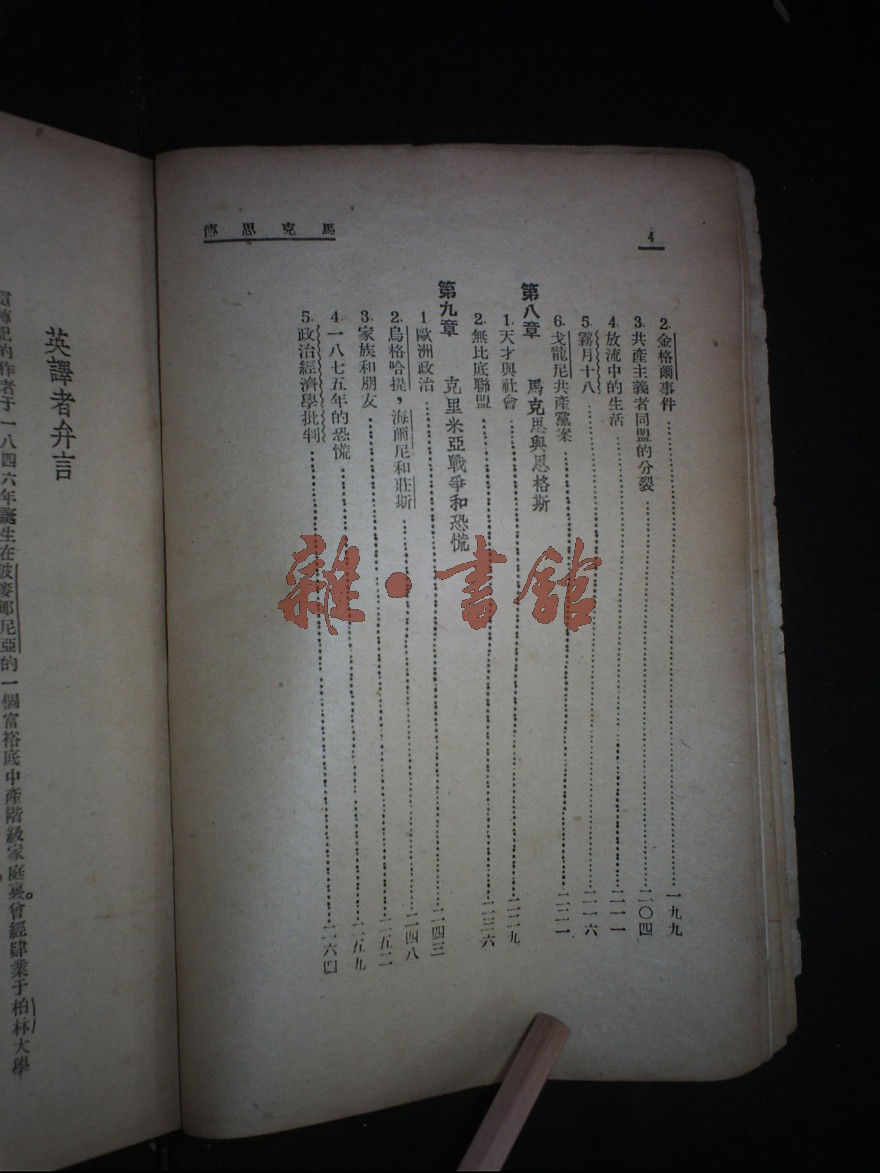 4
馬克思傳
2. 金格爾事件 一九九
3. 共產主義者同盟的分裂 二〇四
4. 放流中的生活 二一一
5. 霧月十八 二一六
6. 戈龍尼共產黨案 二二一
第八章 馬克思與恩格斯
1. 天才與社會 二二九
2. 無比底聯盟 二三六
第九章 克里米亞戰爭和恐慌
1. 歐洲政治 二四三
2. 烏格哈提,海爾尼和莊斯 二四八
3. 家族和朋友 二五二
4. 一八七五年的恐慌 二五九
5. 政治經濟學批判 二六四
雜·書館
英譯者弁言
這傳記的作者于一八四六年誕生在波麥郎尼亞的一個富裕底中產階級家庭裏。曾經肄業于柏林大學